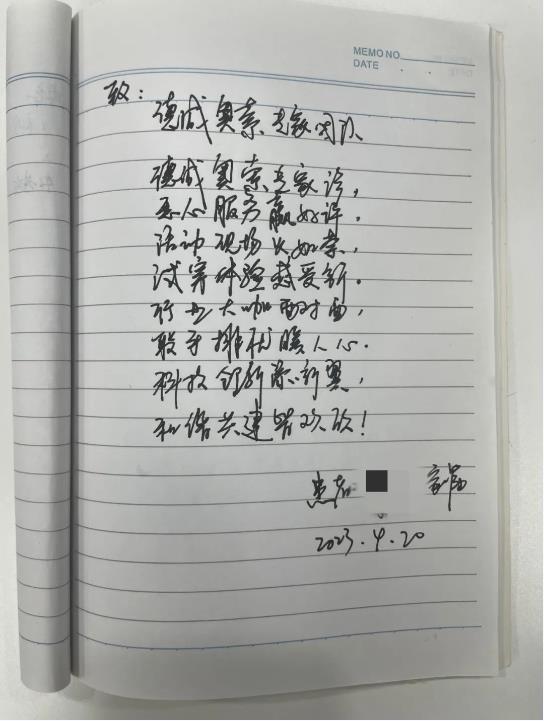 MEMO NO.
DATE
致：
德诚奥索专家团队
德诚奥索专家诊，
贴心服务赢好评。
活动现场长如荣，
试穿体验感受新。
行业大咖面对面，
敢于排忧暖人心。
科技创新添新翼，
和谐共建皆欢欣！
患者 家属
2023.4.20